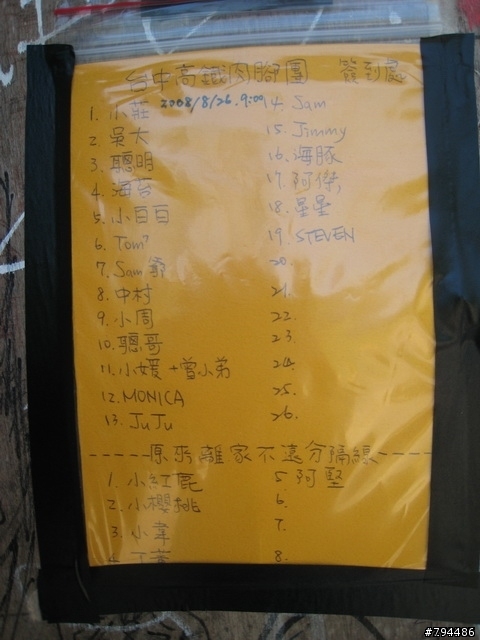 台中高鐵肉腳團 簽到處
2008/8/26. 9:00
1. 小莊
2. 吳大
3. 聰明
4. 海苔
5. 小百百
6. Tom
7. Sam爺
8. 中村
9. 小周
10. 聰哥
11. 小媛+曾小弟
12. MONICA
13. JuJu
14. Sam
15. Jimmy
16. 海豚
17. 阿傑
18. 星星
19. STEVEN
20.
21.
22.
23.
24.
25.
26.
-----原來離家不遠分隔線----
1. 小紅
2. 小櫻桃
3. 小韋
4.
5. 阿堅
6.
7.
8.
#794486